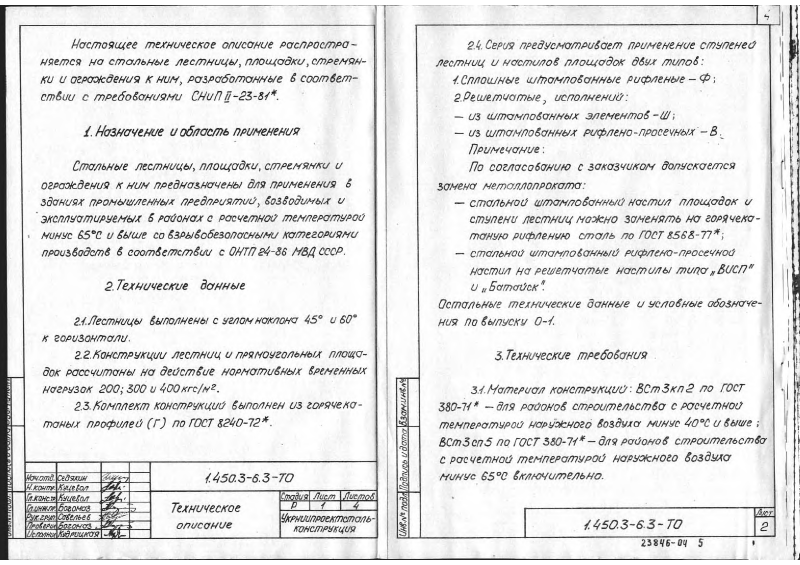 Настоящее техническое описание распростра-
няется на стальные лестницы, площадки, стремян-
ки и ограждения к ним, разработанные в соответ-
ствии с требованиями СНиП II-23-81*.
1. Назначение и область применения
Стальные лестницы, площадки, стремянки и
ограждения к ним предназначены для применения в
зданиях промышленных предприятий, возводимых и
эксплуатируемых в районах с расчетной температурой
минус 65°С и выше со взрывобезопасными категориями
производств в соответствии с ОНТП 24-86 МВД СССР.
2. Технические данные
2.1. Лестницы выполнены с углом наклона 45° и 60°
к горизонтали.
2.2. Конструкции лестниц и прямоугольных площа-
док рассчитаны на действие нормативных временных
нагрузок 200; 300 и 400 кгс/м².
2.3. Комплект конструкций выполнен из горячека-
таных профилей (Г) по ГОСТ 8240-72*.
Нач.отд. Седяхин
Н.контр. Куцевол
Гл.конст. Куцевол
Гл.инж.пр. Богомаз
Рук.груп. Савельев
Проверил Богомаз
Исполнил Кадрицкая
1.450.3-6.3-ТО
Техническое
описание
Стадия Лист Листов
Р 1 4
Укрниипроектсталь-
конструкция
4
2.4. Серия предусматривает применение ступеней
лестниц и настилов площадок двух типов:
1. Сплошные штампованные рифленые - Ф;
2. Решетчатые, исполнений:
— из штампованных элементов - Ш;
— из штампованных рифлено-просечных - В.
Примечание:
По согласованию с заказчиком допускается
замена металлопроката:
— стальной штампованный настил площадок и
ступени лестниц можно заменять на горячека-
таную рифленую сталь по ГОСТ 8568-77*;
— стальной штампованный рифлено-просечной
настил на решетчатые настилы типа „ВИСП"
и „Батайск".
Остальные технические данные и условные обозначе-
ния по выпуску 0-1.
3. Технические требования
3.1. Материал конструкций: ВСт3кп2 по ГОСТ
380-71* — для районов строительства с расчетной
температурой наружного воздуха минус 40°С и выше;
ВСт3сп5 по ГОСТ 380-71* — для районов строительства
с расчетной температурой наружного воздуха
минус 65°С включительно.
Инв.№ подл. Подпись и дата Взам.инв.№
1.450.3-6.3-ТО
Лист
2
23846-04 5